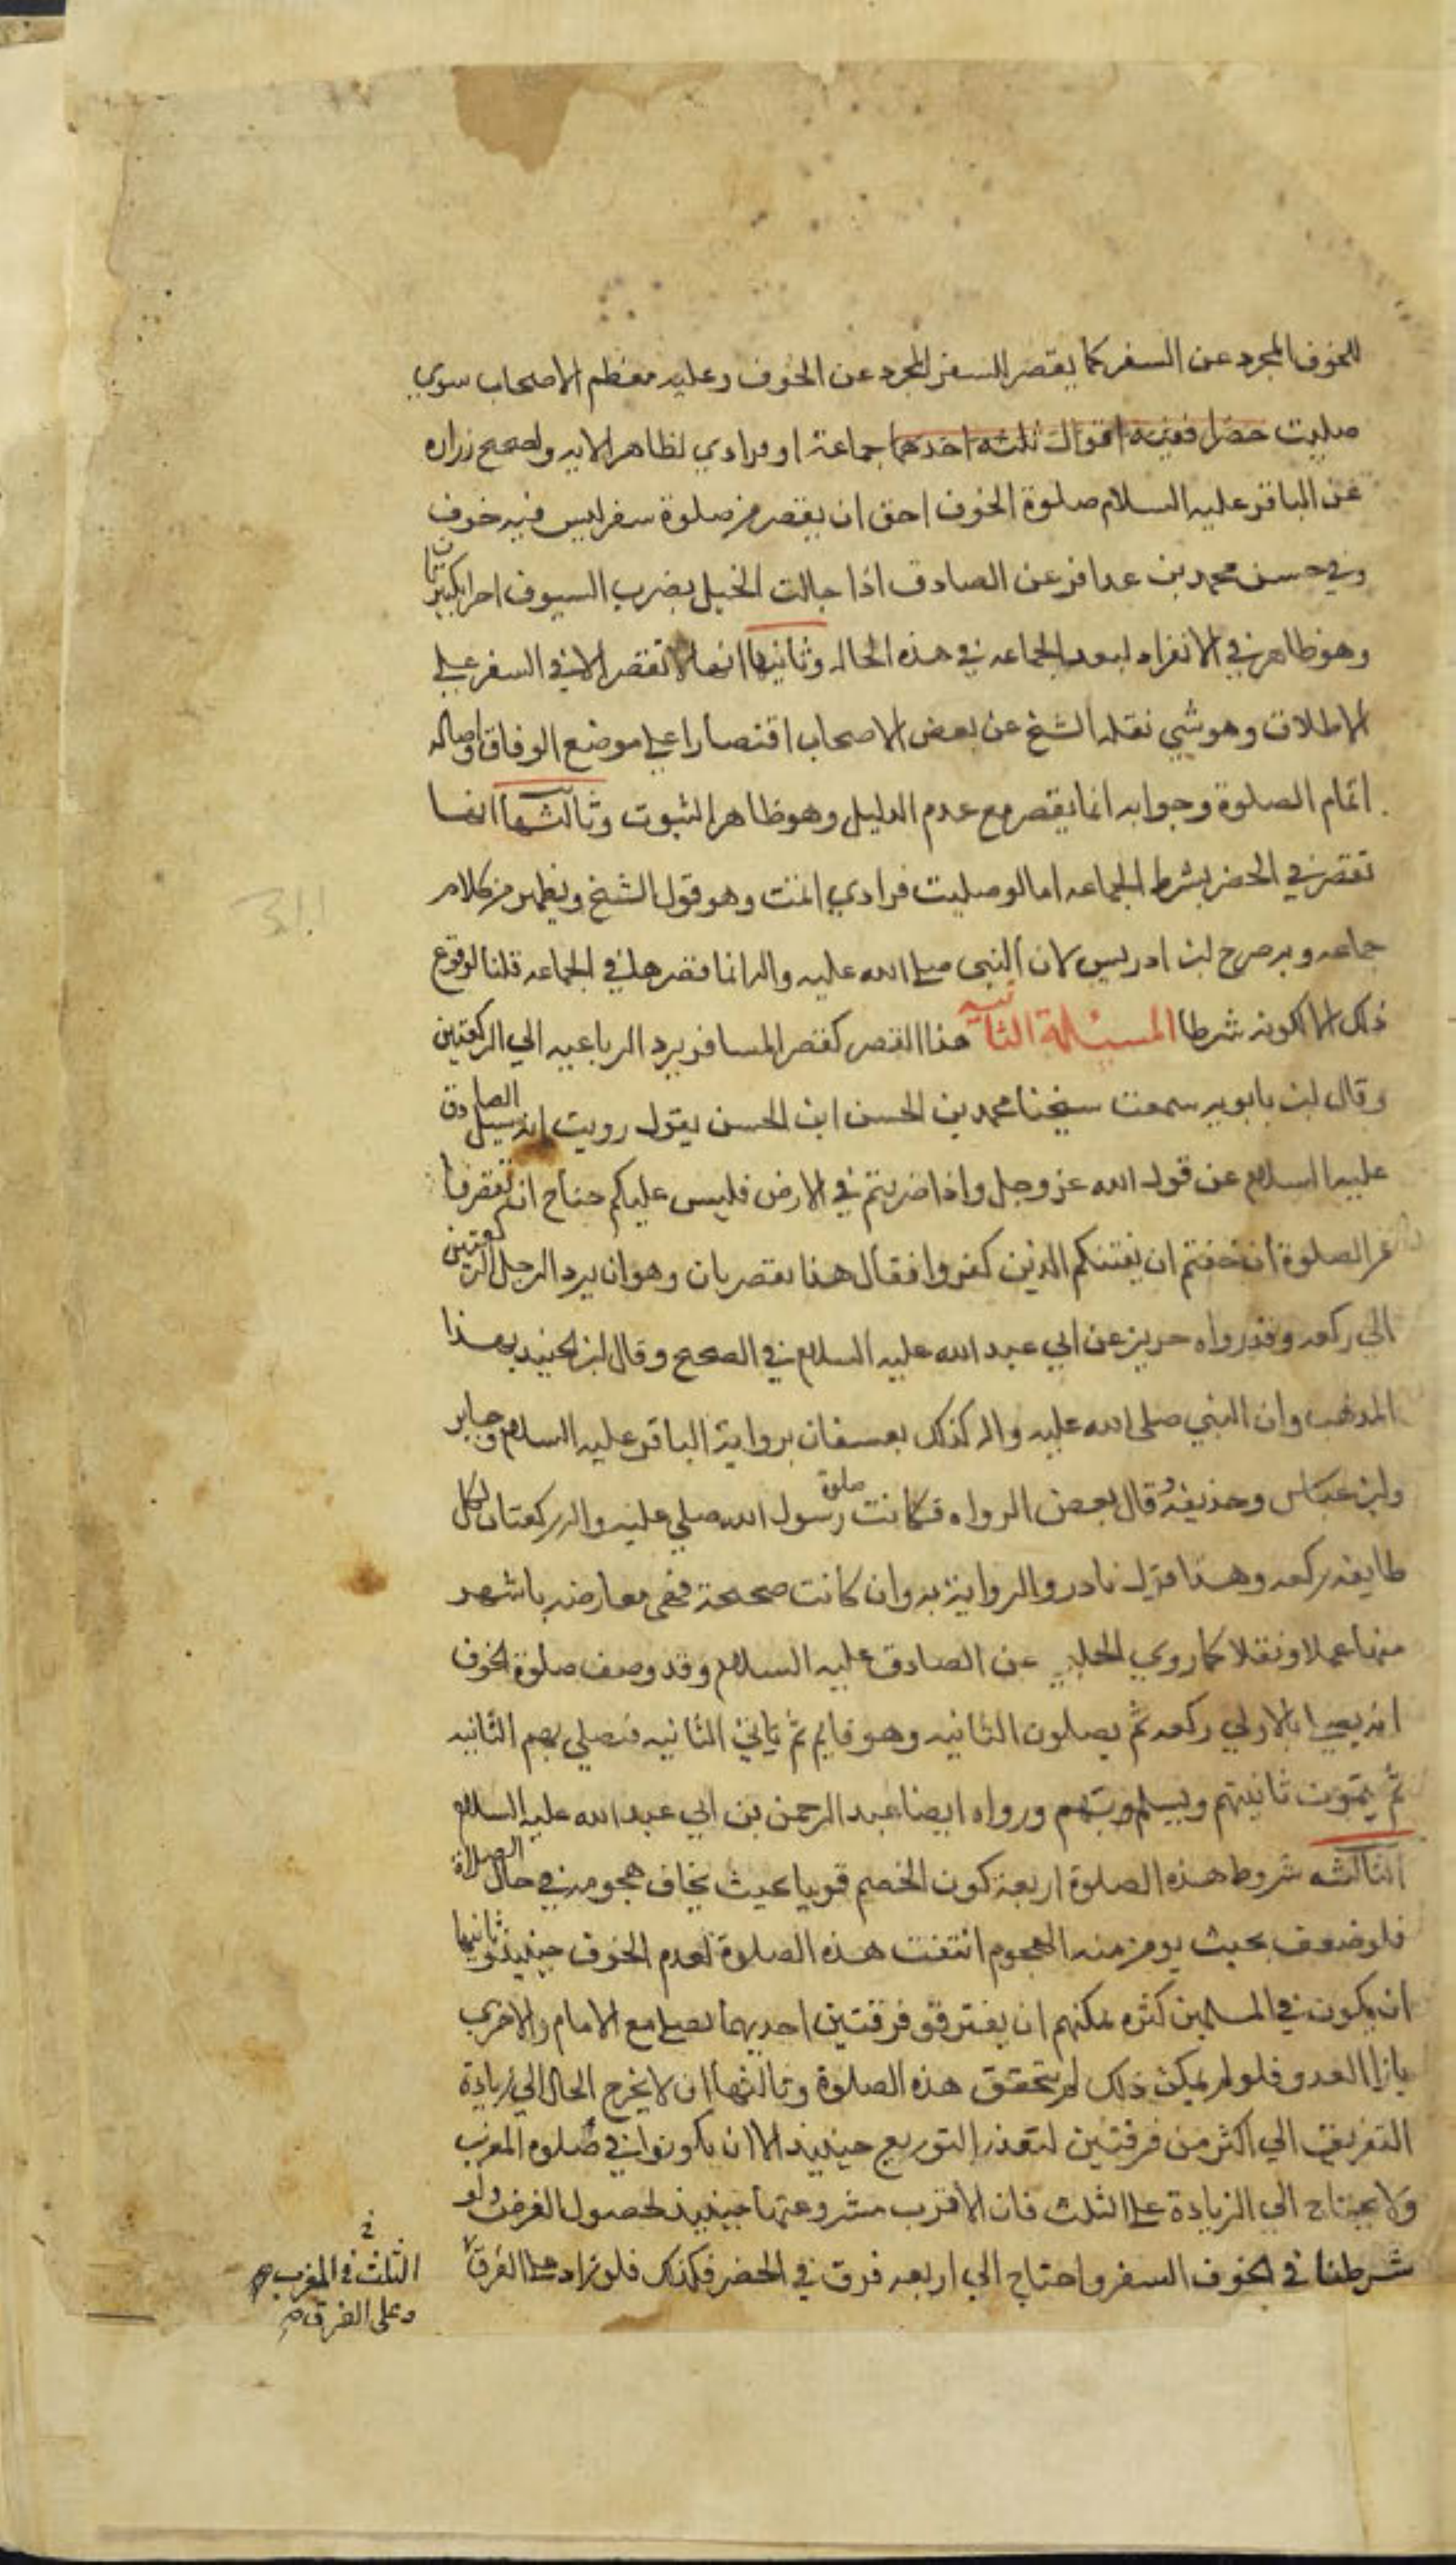 للخوف المجرد عن السفر كما يقصر السفر المجرد عن الخوف وعليه معظم الاصحاب سوي
صليت حضرا ففيه اقوال ثلثه احدها جماعة او فرادي لظاهر الايه ولصحيح زراره
عن الباقر عليه السلام صلوة الخوف احق ان يقصر من صلوة سفر ليس فيه خوف
وفي حسن محمد بن عذافر عن الصادق اذا جالت الخيل بضرب السيوف اجزا تكبيرتان
وهو ظاهر في الانفراد لبعد الجماعه في هذه الحاله وثانيها انها لا تقصر الا في السفر علي
الاطلاق وهو شي نقله الشيخ عن بعض الاصحاب اقتصارا علي موضع الوفاق واصاله
اتمام الصلوة وجوابه انما يقصر مع عدم الدليل وهو ظاهر الثبوت وثالثها انها
تقصر في الحضر بشرط الجماعه اما لو صليت فرادي اتمت وهو قول الشيخ ويظهر من كلام
جماعه وبه صرح ابن ادريس لان النبي صلي الله عليه واله انما قصرها في الجماعه قلنا لوقوع
ذلك لا لكونه شرطا المسئلة الثانيه هذا القصر كقصر المسافر يرد الرباعيه الي الركعتين
وقال ابن بابويه سمعت شيخنا محمد بن الحسن ابن الحسن يقول رويت انه سيل الصادق
عليه السلام عن قول الله عز وجل واذا ضربتم في الارض فليس عليكم جناح ان تقصروا
من الصلوة ان خفتم ان يفتنكم الذين كفروا فقال هذا تقصر ثان وهو ان يرد الرجل الركعتين
الي ركعه وقد رواه حريز عن ابي عبد الله عليه السلام في الصحيح وقال ابن الجنيد بهذا
المذهب وان النبي صلي الله عليه واله كذلك بعسفان برواية الباقر عليه السلام وجابر
وابن عباس وحذيفه قال بعض الرواه فكانت صلوة رسول الله صلي عليه واله ركعتان لكل
طايفه ركعه وهذا قول نادر والرواية به وان كانت صحيحة فهي معارضه باشهر
منها عملا ونقلا كما روي الحلبي عن الصادق عليه السلام وقد وصف صلوة الخوف
انه يصلي بالاولي ركعه ثم يصلون الثانيه وهو قايم ثم ياتي الثانيه فيصلي بهم الثانيه
ثم يتمون ثانيتهم ويسلم بهم ورواه ايضا عبد الرحمن بن ابي عبد الله عليه السلام
الثالثه شروط هذه الصلوة اربعة كون الخصم قويا بحيث يخاف هجومه في حال الصلاة
فلو ضعف بحيث يومن منه الهجوم انتفت هذه الصلوة لعدم الخوف حينيذ وثانيها
ان يكون في المسلمين كثره يمكنهم ان يفترقوا فرقتين احديهما يصلي مع الامام والاخري
بازا العدو فلو لم يمكن ذلك لم يتحقق هذه الصلوة وثالثها ان لا يخرج الحال الي زيادة
التفريق الي اكثر من فرقتين لتعذر التوزيع حينيذ الا ان يكونوا في صلوه المغرب
ولا يحتاج الي الزيادة علي الثلث فان الاقرب مشروعيتها حينيذ لحصول الغرض ولو
شرطنا في الخوف السفر واحتاج الي اربعه فرق في الحضر فكذلك فلو زاد علي الفرق
الثلث في المغرب
وعلي الفرق